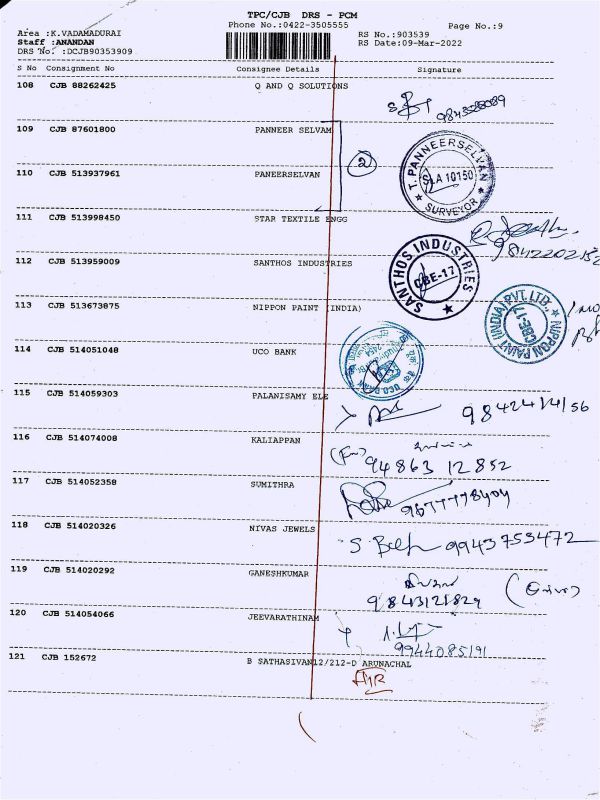 TPC/CJB DRS - PCM
Phone No.:0422-3505555
Page No.:9
Area :K.VADAMADURAI
Staff :ANANDAN
DRS No. :DCJB90353909
RS No.:903539
RS Date:09-Mar-2022
S No Consignment No Consignee Details Signature
108 CJB 88262425 Q AND Q SOLUTIONS
109 CJB 87601800 PANNEER SELVAM
2
T. PANNEERSELVAN
SLA 10150
SURVEYOR
110 CJB 513937961 PANEERSELVAN
111 CJB 513998450 STAR TEXTILE ENGG
112 CJB 513959009 SANTHOS INDUSTRIES
SANTHOS INDUSTRIES
CBE-17
113 CJB 513673875 NIPPON PAINT (INDIA)
NIPPON PAINT (INDIA) PVT. LTD.
CBE-17
114 CJB 514051048 UCO BANK
115 CJB 514059303 PALANISAMY ELE
116 CJB 514074008 KALIAPPAN
94863 12852
117 CJB 514052358 SUMITHRA
118 CJB 514020326 NIVAS JEWELS
9943753472
119 CJB 514020292 GANESHKUMAR
120 CJB 514054066 JEEVARATHINAM
9944085191
121 CJB 152672 B SATHASIVAN12/212-D ARUNACHAL